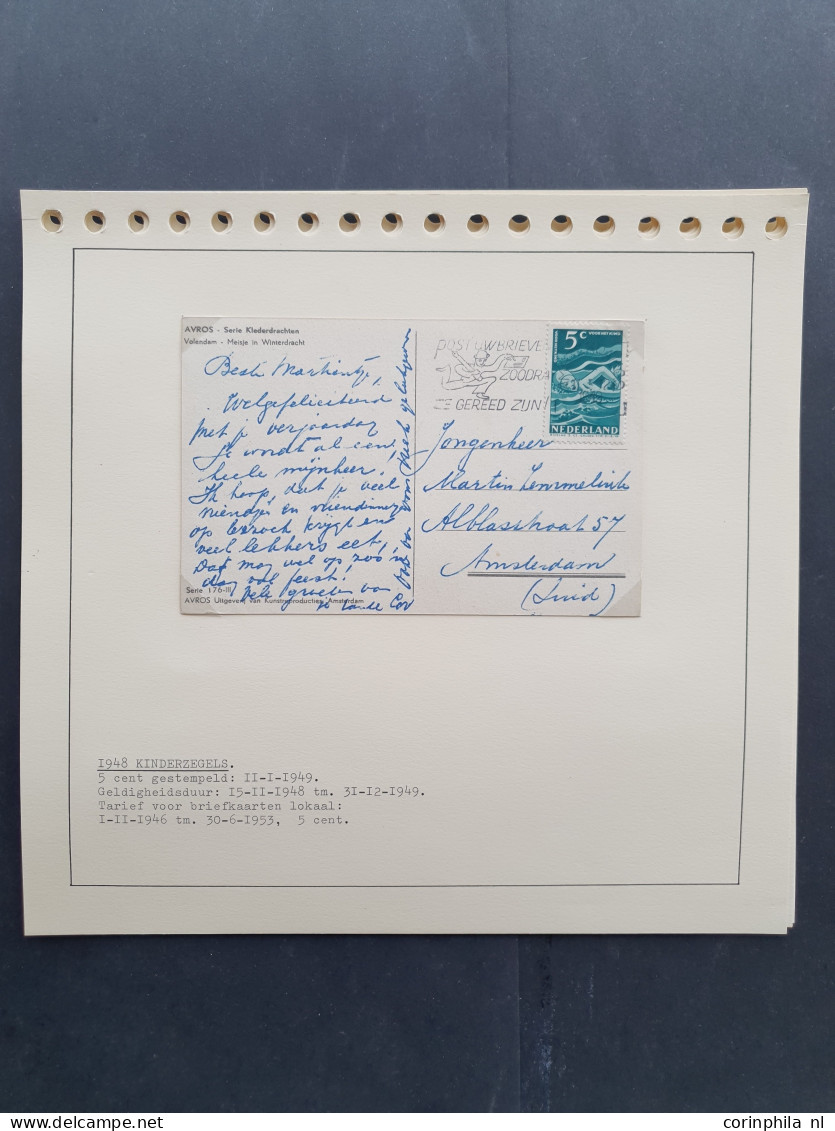 AVROS - Serie Klederdrachten
Volendam - Meisje in Winterdracht
Beste Martientje,
Welgefeliciteerd
met je verjaardag
Je wordt al een
heele mijnheer!
Ik hoop, dat je veel
vriendjes en vriendinnetjes
op bezoek krijgt en
veel lekkers eet,
Dat mag wel op zoo'n
dag vol feest!
Vele groeten van
je tante Cor
Serie 176-III
AVROS Uitgeverij van Kunstreproducties Amsterdam
POST UW BRIEVEN
ZOODRA
ZE GEREED ZIJN!
5c
VOOR HET KIND
NEDERLAND
Jongenheer
Martin Lemmelink
Alblasstraat 57
Amsterdam
(Zuid)
1948 KINDERZEGELS.
5 cent gestempeld: II-I-1949.
Geldigheidsduur: 15-II-1948 tm. 31-12-1949.
Tarief voor briefkaarten lokaal:
I-II-1946 tm. 30-6-1953, 5 cent.
www.corinphila nl